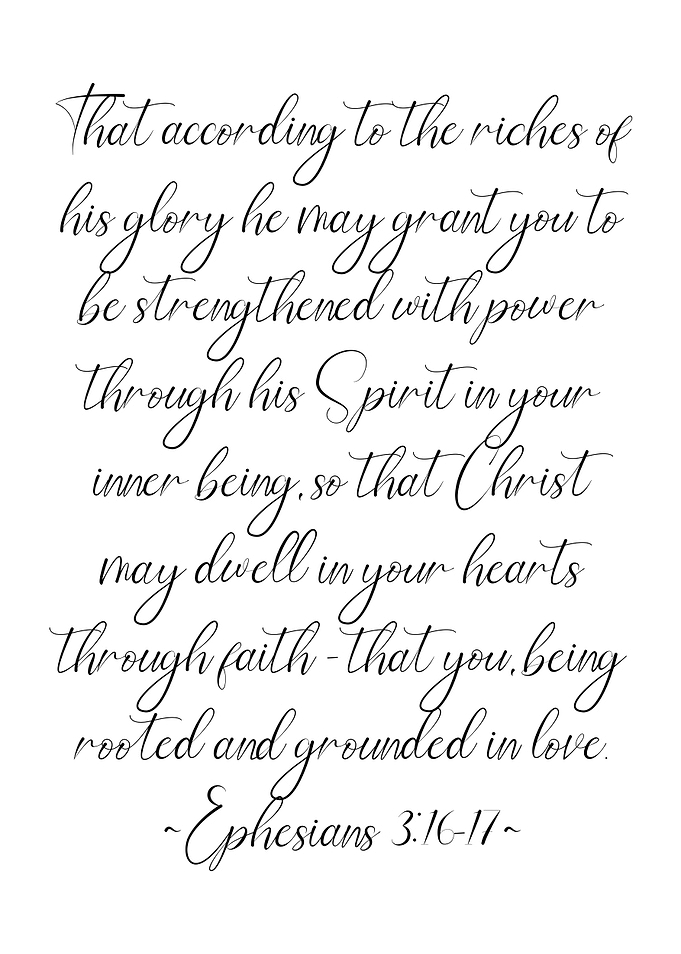 That according to the riches of
his glory he may grant you to
be strengthened with power
through his Spirit in your
inner being, so that Christ
may dwell in your hearts
through faith - that you, being
rooted and grounded in love.
~Ephesians 3:16-17~